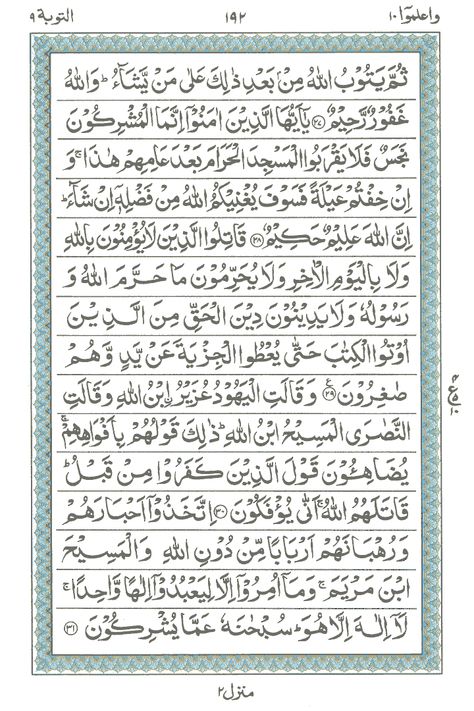 واعلموا ١٠ ١٩٢ التوبة ٩
ثُمَّ يَتُوْبُ اللّٰهُ مِنْۢ بَعْدِ ذٰلِكَ عَلٰى مَنْ يَّشَآءُ ؕ وَاللّٰهُ
غَفُوْرٌ رَّحِيْمٌ ﴿۲۷﴾ يٰۤاَيُّهَا الَّذِيْنَ اٰمَنُوْۤا اِنَّمَا الْمُشْرِكُوْنَ
نَجَسٌ فَلَا يَقْرَبُوا الْمَسْجِدَ الْحَرَامَ بَعْدَ عَامِهِمْ هٰذَا ۚ وَ
اِنْ خِفْتُمْ عَيْلَةً فَسَوْفَ يُغْنِيْكُمُ اللّٰهُ مِنْ فَضْلِهٖۤ اِنْ شَآءَ ؕ
اِنَّ اللّٰهَ عَلِيْمٌ حَكِيْمٌ ﴿۲۸﴾ قَاتِلُوا الَّذِيْنَ لَا يُؤْمِنُوْنَ بِاللّٰهِ
وَلَا بِالْيَوْمِ الْاٰخِرِ وَلَا يُحَرِّمُوْنَ مَا حَرَّمَ اللّٰهُ وَ
رَسُوْلُهٗ وَلَا يَدِيْنُوْنَ دِيْنَ الْحَقِّ مِنَ الَّذِيْنَ
اُوْتُوا الْكِتٰبَ حَتّٰى يُعْطُوا الْجِزْيَةَ عَنْ يَّدٍ وَّهُمْ
صٰغِرُوْنَ ﴿۲۹﴾ وَقَالَتِ الْيَهُوْدُ عُزَيْرُ ۨابْنُ اللّٰهِ وَقَالَتِ
النَّصٰرَى الْمَسِيْحُ ابْنُ اللّٰهِ ؕ ذٰلِكَ قَوْلُهُمْ بِاَفْوَاهِهِمْ ۚ
يُضَاهِـُٔوْنَ قَوْلَ الَّذِيْنَ كَفَرُوْا مِنْ قَبْلُ ؕ
قَاتَلَهُمُ اللّٰهُ ۚ اَنّٰى يُؤْفَكُوْنَ ﴿۳۰﴾ اِتَّخَذُوْۤا اَحْبَارَهُمْ
وَرُهْبَانَهُمْ اَرْبَابًا مِّنْ دُوْنِ اللّٰهِ وَالْمَسِيْحَ
ابْنَ مَرْيَمَ ۚ وَمَاۤ اُمِرُوْۤا اِلَّا لِيَعْبُدُوْۤا اِلٰهًا وَّاحِدًا ۚ
لَاۤ اِلٰهَ اِلَّا هُوَ ؕ سُبْحٰنَهٗ عَمَّا يُشْرِكُوْنَ ﴿۳۱﴾
منزل ٢